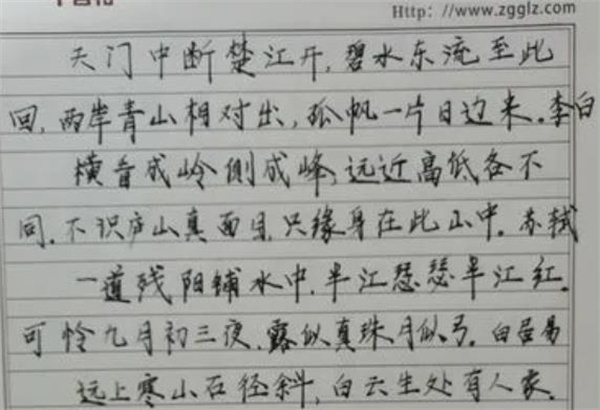 Http: //www.zgglz.com
天门中断楚江开,碧水东流至此
回,两岸青山相对出,孤帆一片日边来.李白
横看成岭侧成峰,远近高低各不
同.不识庐山真面目,只缘身在此山中.苏轼
一道残阳铺水中,半江瑟瑟半江红.
可怜九月初三夜,露似真珠月似弓.白居易
远上寒山石径斜,白云生处有人家.